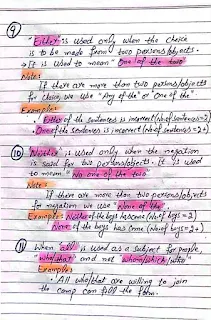 9
"Either" is used only when the choice
is to be made from two persons/objects.
→ It is used to mean "One of the two"
Note:
If there are more than two persons/objects
for choice, we use "Any of the" or "One of the".
Example:
• Either of the sentences is incorrect (Nb. of sentences = 2)
• One of the sentences is incorrect (Nb. of sentences = 2+)
10 "Neither" is used only when the negation
is said for two persons/objects. It is used
to mean "No one of the two"
Note:
If there are more than two persons/objects
for negation we use "None of the".
Example: Neither of the boys has come (No. of boys = 2)
None of the boys has come (No. of boys = 2+)
11 When "all" is used as a subject for people,
who/that and not whom/which/who
Example:
• All who/that are willing to join
the camp can fill the form.